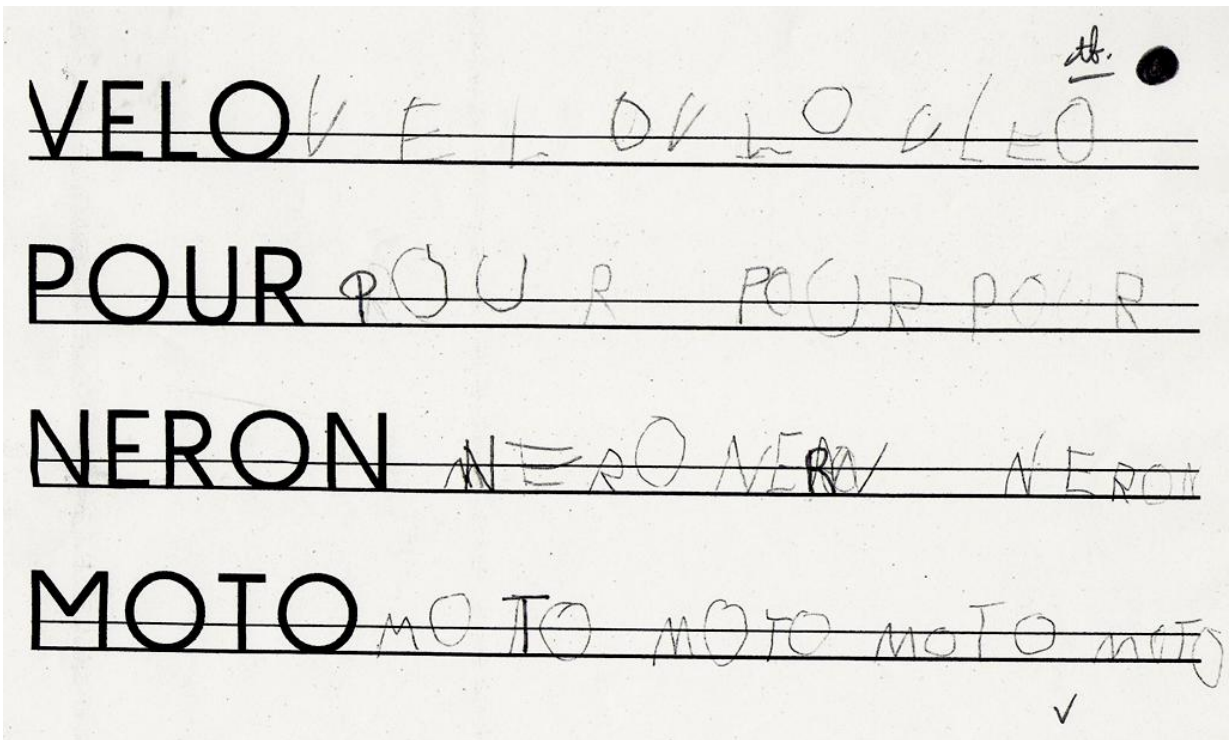 tb.
VELO V E L O V L O V L E O
POUR P O U R POUR POUR
NERON NERO NERON NERON
MOTO MOTO MOTO MOTO MOTO